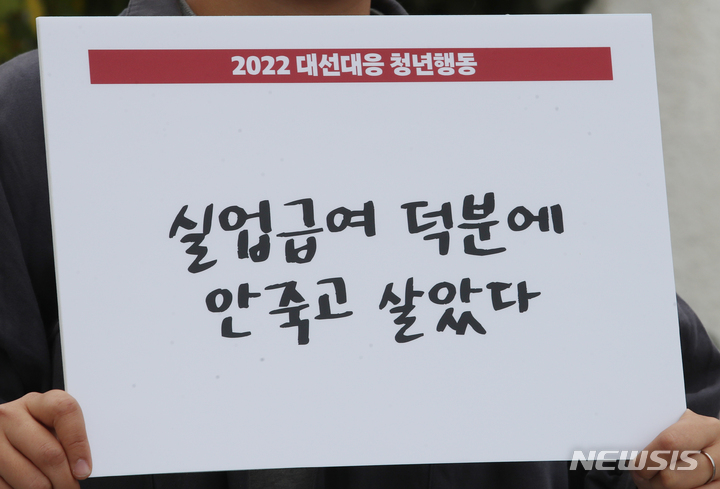 2022 대선대응 청년행동
실업급여 덕분에
안죽고 살았다
NEWSIS